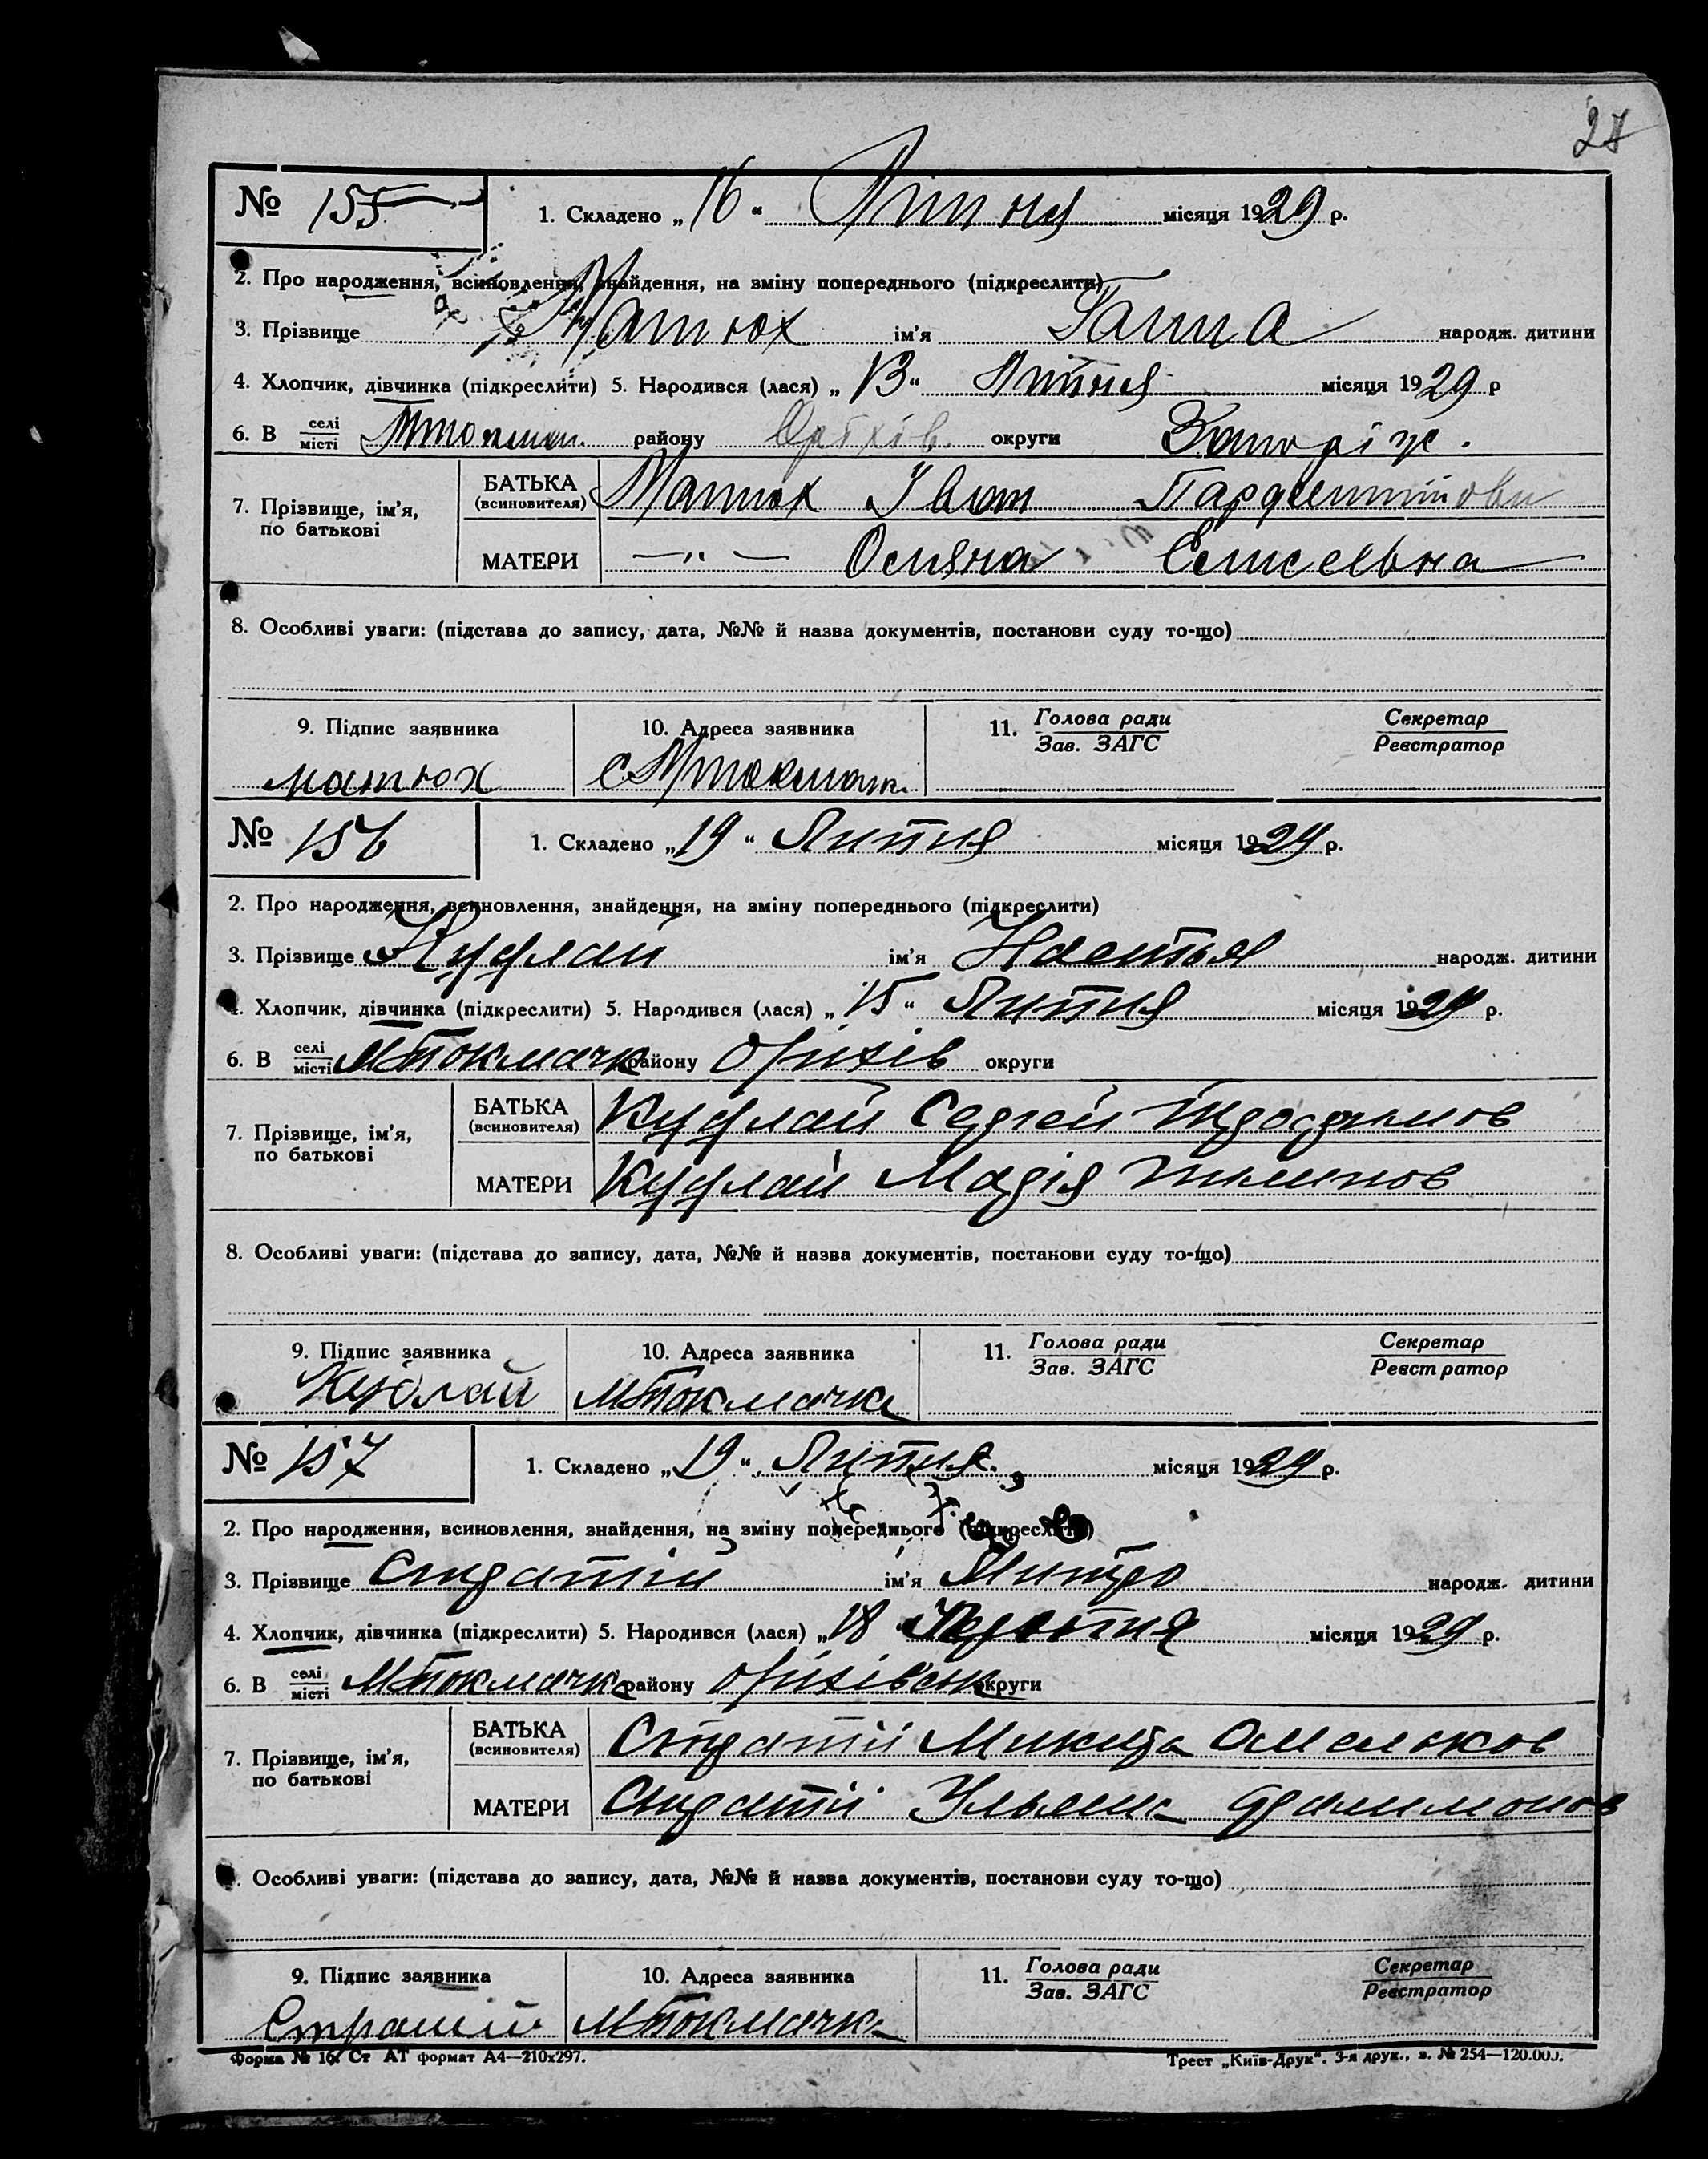 27
№ 155 1. Складено „16“ Липня місяця 1929 р.
2. Про народження, всиновлення, знайдення, на зміну попереднього (підкреслити)
3. Прізвище Матюх ім'я Ганна народж. дитини
4. Хлопчик, дівчинка (підкреслити) 5. Народився (лася) „13“ Липня місяця 1929 р
6. В селі місті МТокмач. району Оріхів. округи Запоріж.
7. Прізвище, ім'я, по батькові
БАТЬКА (всиновителя) Матюх Іван
МАТЕРИ —„— Оляна Елисеевна
8. Особливі уваги: (підстава до запису, дата, №№ й назва документів, постанови суду то-що)
9. Підпис заявника 10. Адреса заявника 11. Голова ради Зав. ЗАГС Секретар Реєстратор
матюх с МТокмачк.
№ 156 1. Складено „19“ Липня місяця 1929 р.
2. Про народження, всиновлення, знайдення, на зміну попереднього (підкреслити)
3. Прізвище Курлай ім'я Настья народж. дитини
4. Хлопчик, дівчинка (підкреслити) 5. Народився (лася) „15“ Липня місяця 1929 р.
6. В селі місті МТокмачк району Оріхів округи
7. Прізвище, ім'я, по батькові
БАТЬКА (всиновителя) Курлай Сергей Трофимов
МАТЕРИ Курлай Марія
8. Особливі уваги: (підстава до запису, дата, №№ й назва документів, постанови суду то-що)
9. Підпис заявника 10. Адреса заявника 11. Голова ради Зав. ЗАГС Секретар Реєстратор
МТокмачка
№ 157 1. Складено „19“ Липня місяця 1929 р.
2. Про народження, всиновлення, знайдення, на зміну попереднього (підкреслити)
3. Прізвище Стратій ім'я Митро народж. дитини
4. Хлопчик, дівчинка (підкреслити) 5. Народився (лася) „18 місяця 1929 р.
6. В селі місті МТокмачка району Оріхівськ округи
7. Прізвище, ім'я, по батькові
БАТЬКА (всиновителя) Стратій Микита Омельков
МАТЕРИ Стратій Ульяна
8. Особливі уваги: (підстава до запису, дата, №№ й назва документів, постанови суду то-що)
9. Підпис заявника 10. Адреса заявника 11. Голова ради Зав. ЗАГС Секретар Реєстратор
Стратій МТокмачка
Форма № 16. Ст АТ формат А4—210х297. Трест „Київ-Друк“. 3-я друк., з. № 254—120.000.